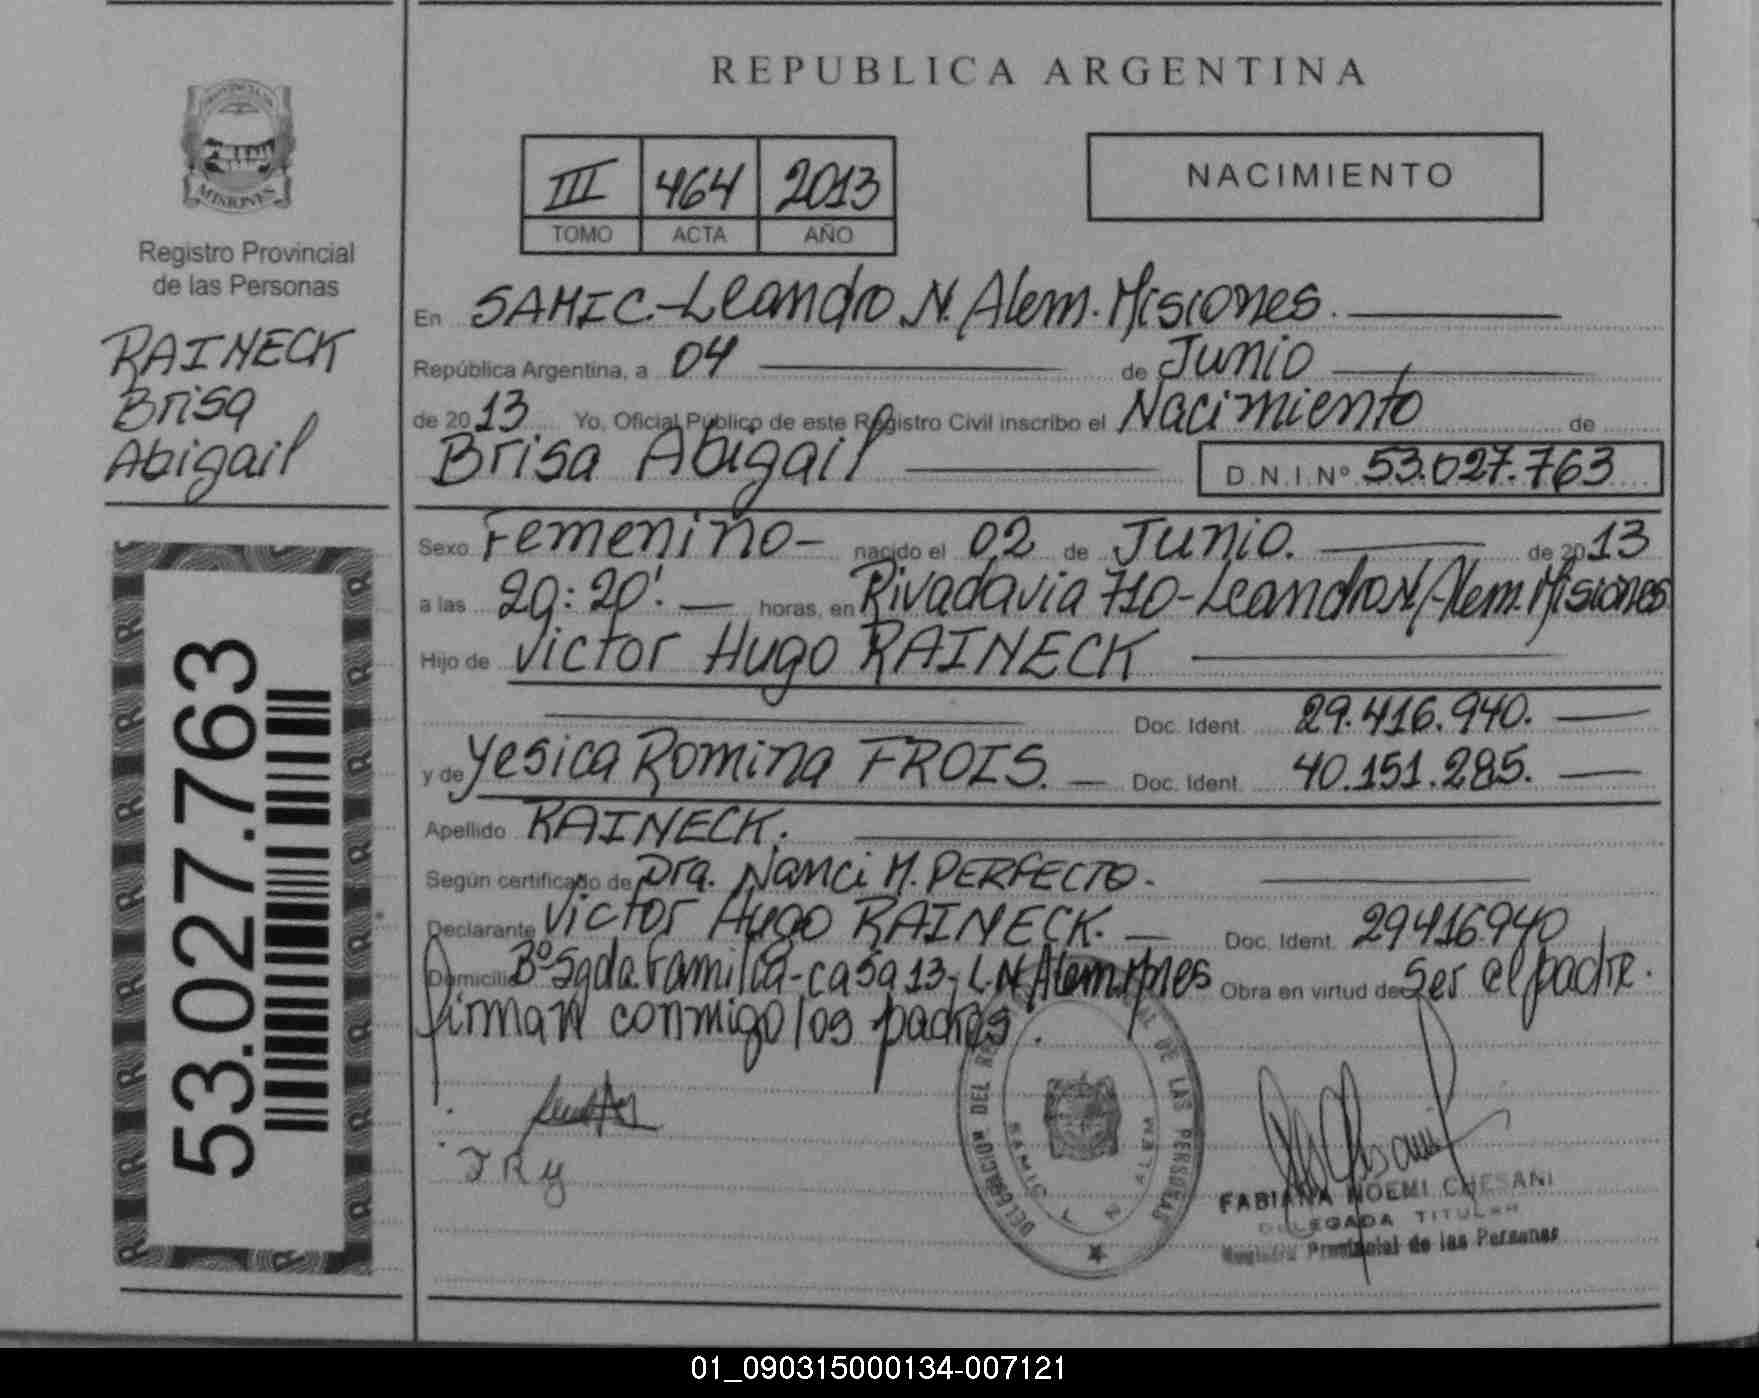 REPUBLICA ARGENTINA
PROVINCIA DE
MISIONES
Registro Provincial
de las Personas
RAINECK
Brisa
Abigail
53.027.763
III 464 2013
TOMO ACTA AÑO
NACIMIENTO
En SAMIC-Leandro N. Alem. Misiones.
República Argentina, a 04 de Junio
de 2013 Yo, Oficial Público de este Registro Civil inscribo el Nacimiento de
Brisa Abigail D.N.I.Nº 53.027.763
Sexo Femenino- nacido el 02 de Junio. de 2013
a las 20:20'. horas, en Rivadavia 710-Leandro N. Alem. Misiones
Hijo de Victor Hugo RAINECK
Doc. Ident. 29.416.940.
y de Yesica Romina FROIS. Doc. Ident. 40.151.285.
Apellido RAINECK.
Según certificado de Dra. Nanci M. PERFECTO.
Declarante Victor Hugo RAINECK. Doc. Ident. 29416940
Domicilio Bº Sgda. Familia-casa 13-L.N. Alem. Mnes Obra en virtud de Ser el padre.
firman conmigo los padres.
J R y
DELEGACION DEL REGISTRO DE LAS PERSONAS
SAMIC L N ALEM
FABIANA NOEMI CHESANI
DELEGADA TITULAR
Registro Provincial de las Personas
01_090315000134-007121